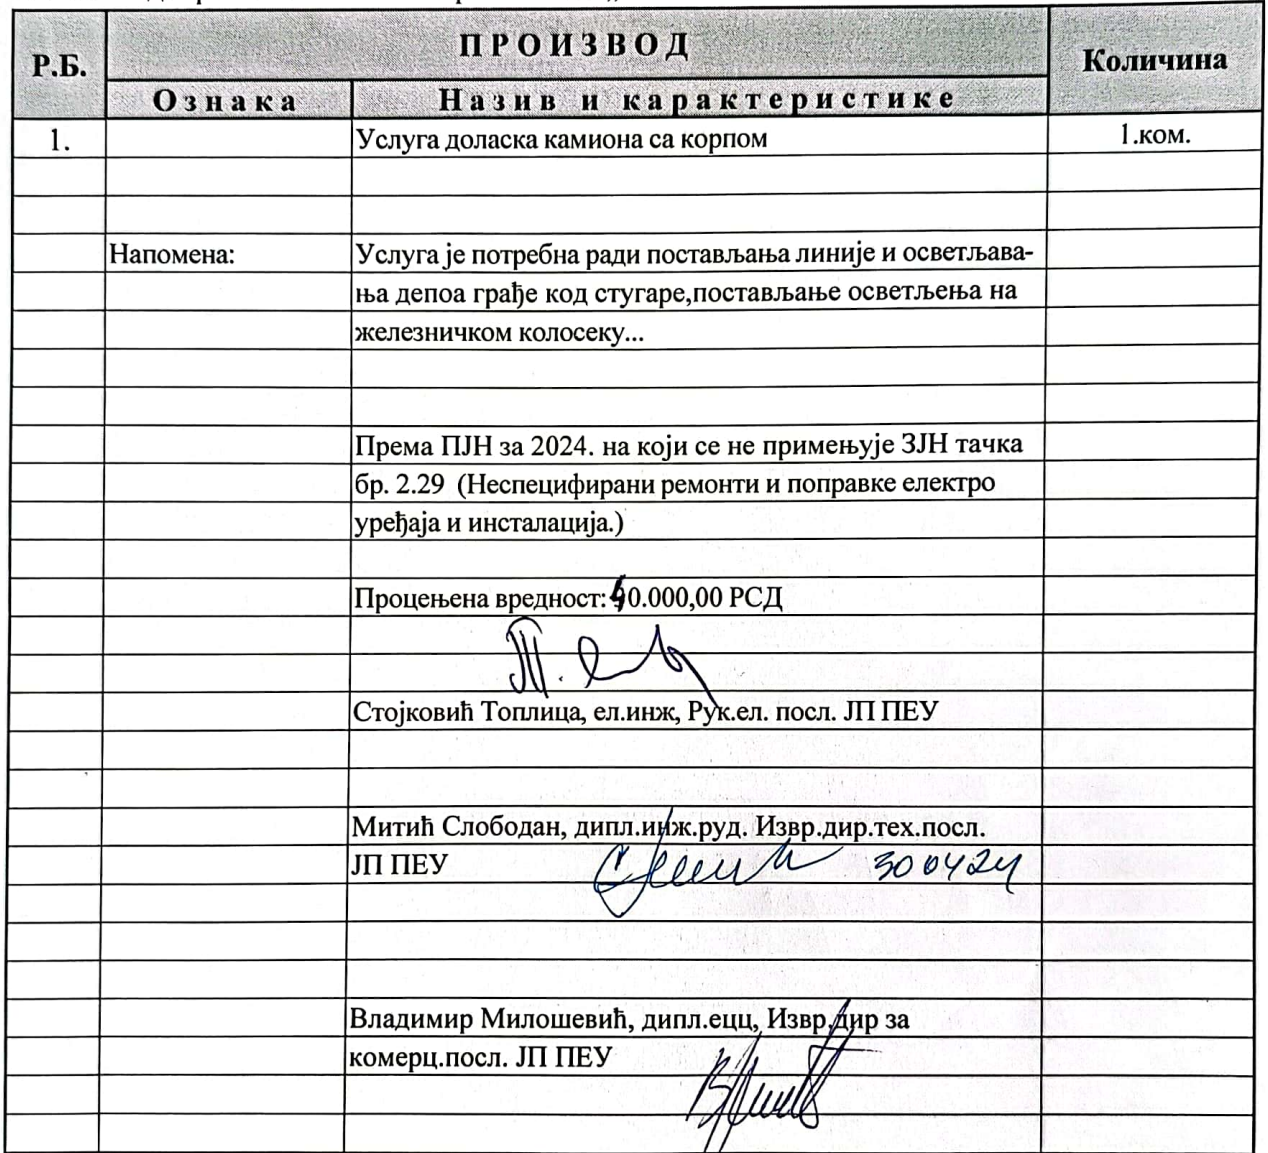 Р.Б.
ПРОИЗВОД
Количина
Ознака
Назив и карактеристике
1.
Услуга доласка камиона са корпом
1.ком.
Напомена:
Услуга је потребна ради постављања линије и осветљава-
ња депоа грађе код стугаре,постављање осветљења на
железничком колосеку...
Према ПЈН за 2024. на који се не примењује ЗЈН тачка
бр. 2.29 (Неспецифирани ремонти и поправке електро
уређаја и инсталација.)
Процењена вредност: 40.000,00 РСД
Стојковић Топлица, ел.инж, Рук.ел. посл. ЈП ПЕУ
Митић Слободан, дипл.инж.руд. Извр.дир.тех.посл.
ЈП ПЕУ
300424
Владимир Милошевић, дипл.ецц, Извр.дир за
комерц.посл. ЈП ПЕУ